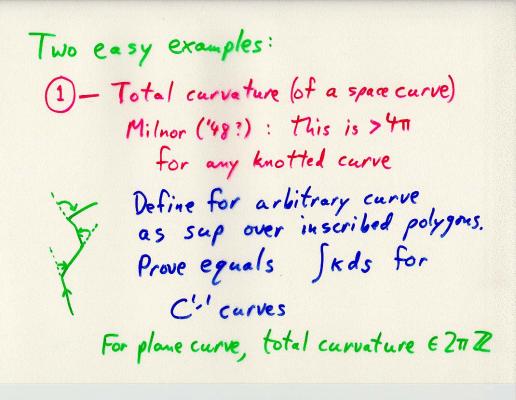 Two easy examples:
① — Total curvature (of a space curve)
Milnor ('48?) : this is > 4π
for any knotted curve
Define for arbitrary curve
as sup over inscribed polygons.
Prove equals ∫κds for
C¹,¹ curves
For plane curve, total curvature ∈ 2πℤ